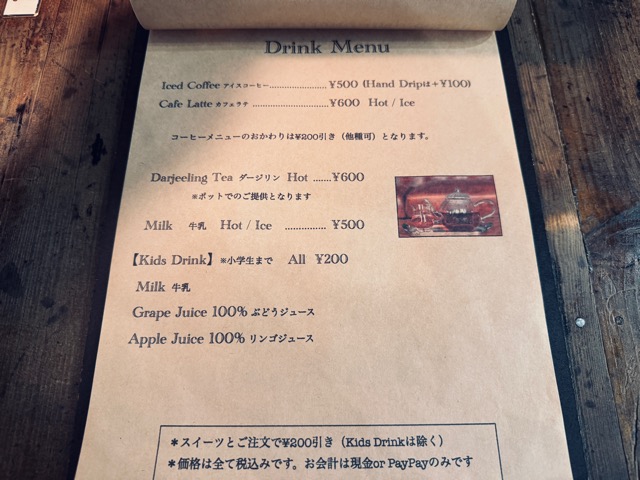 Drink Menu
Iced Coffee アイスコーヒー........................ ¥500 (Hand Dripは+¥100)
Cafe Latte カフェラテ ........................... ¥600 Hot / Ice
コーヒーメニューのおかわりは¥200引き（他種可）となります。
Darjeeling Tea ダージリン Hot .......¥600
※ポットでのご提供となります
Milk 牛乳 Hot / Ice ................ ¥500
【Kids Drink】 ※小学生まで All ¥200
Milk 牛乳
Grape Juice 100% ぶどうジュース
Apple Juice 100% リンゴジュース
＊スイーツとご注文で¥200引き（Kids Drinkは除く）
＊価格は全て税込みです。お会計は現金or PayPayのみです